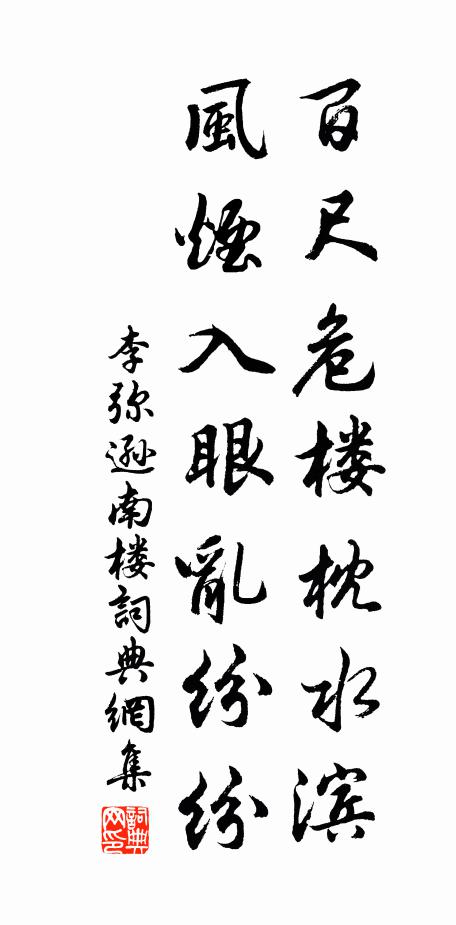 百尺危楼枕水滨
風煙入眼亂紛紛
李弥遜南楼詞典網集
詞典网印